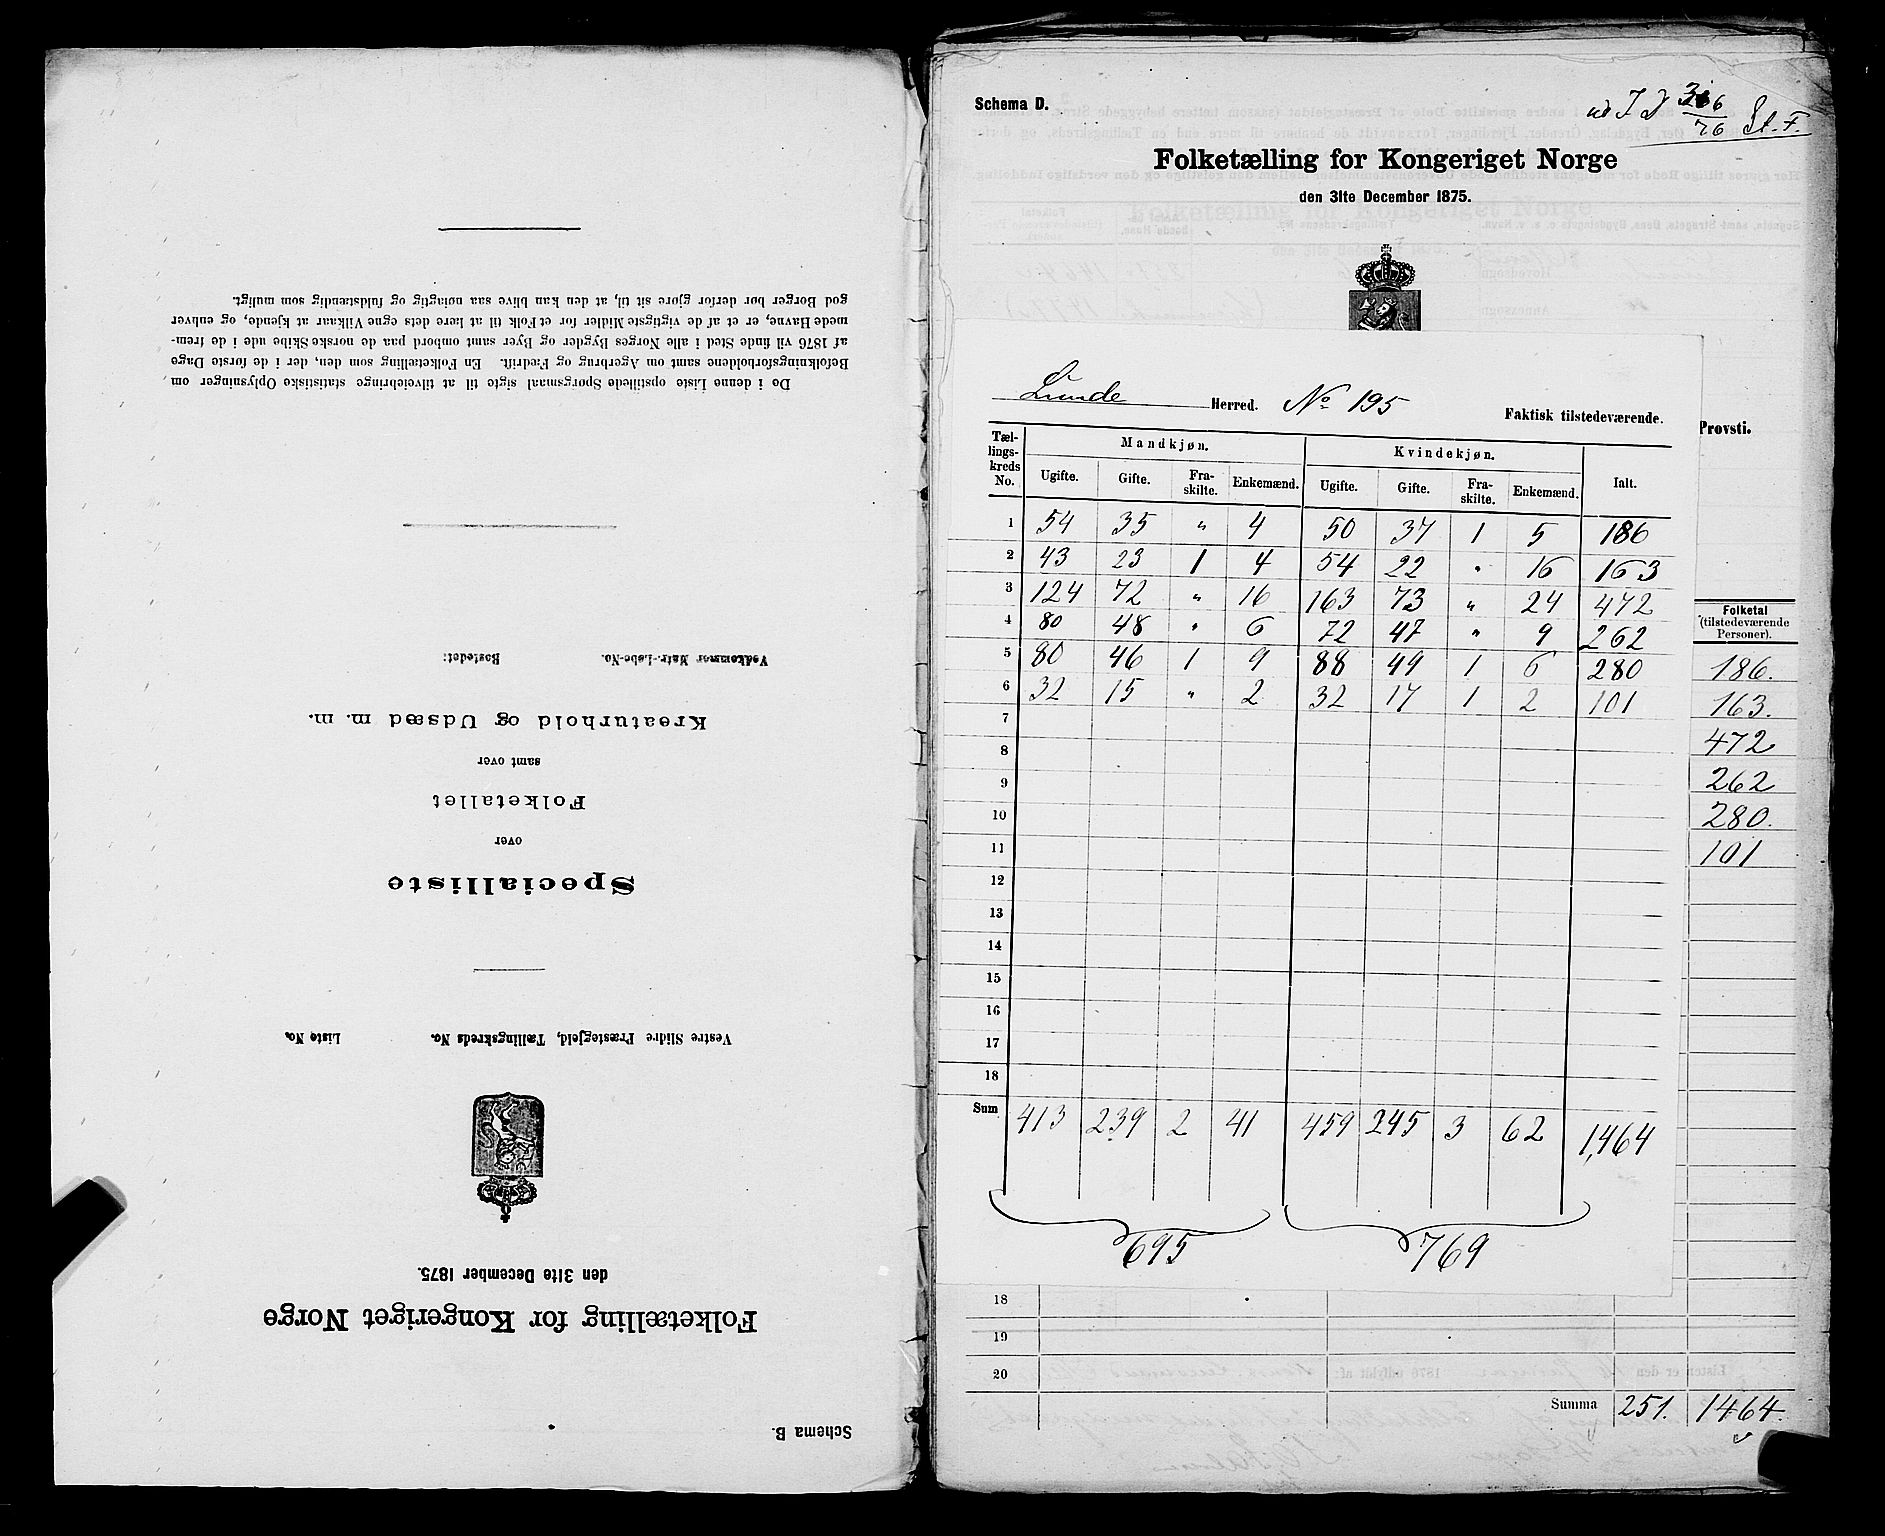 Schema B.
Folketælling for Kongeriget Norge
den 31te December 1875.
Vestre Slidre Præstegjeld, Tællingskreds No. Liste No.
Specialliste
over
Folketallet
samt over
Kreaturhold og Udsæd m. m.
Vedkommer Matr.-Løbe-No. Bostedet:
De i denne Liste opstillede Spørgsmaal sigte til at tilveiebringe statistiske Oplysninger om
Befolkningsforholdene samt om Agerbrug og Fædrift. En Folketælling som den, der i de første Dage
af 1876 vil finde Sted i alle Norges Bygder og Byer samt ombord paa de norske Skibe ude i de frem-
mede Havne, er et af de vigtigste Midler for et Folk til at lære dets egne Vilkaar at kjende, og enhver
god Borger bør derfor gjøre sit til, at den kan blive saa nøiagtig og fuldstændig som muligt.
Schema D.
76 St. F.
Folketælling for Kongeriget Norge
den 31te December 1875.
Lunde Herred. No. 195 Faktisk tilstedeværende.
Provsti.
Tæl-lings-kreds No. Mandkjøn. Kvindekjøn. Ialt.
Ugifte. Gifte. Fra-skilte. Enkemænd. Ugifte. Gifte. Fra-skilte. Enkemænd.
1 54 35 " 4 50 37 1 5 186
2 43 23 1 4 54 22 " 16 163
3 124 72 " 16 163 73 " 24 472
4 80 48 " 6 72 47 " 9 262
5 80 46 1 9 88 49 1 6 280
6 32 15 " 2 32 17 1 2 101
7
8
9
10
11
12
13
14
15
16
17
18
Sum 413 239 2 41 459 245 3 62 1,464
695 769
Folketal
(tilstedeværende
Personer).
186.
163.
472
262
280.
101
18
19
20
Summa 251. 1464.